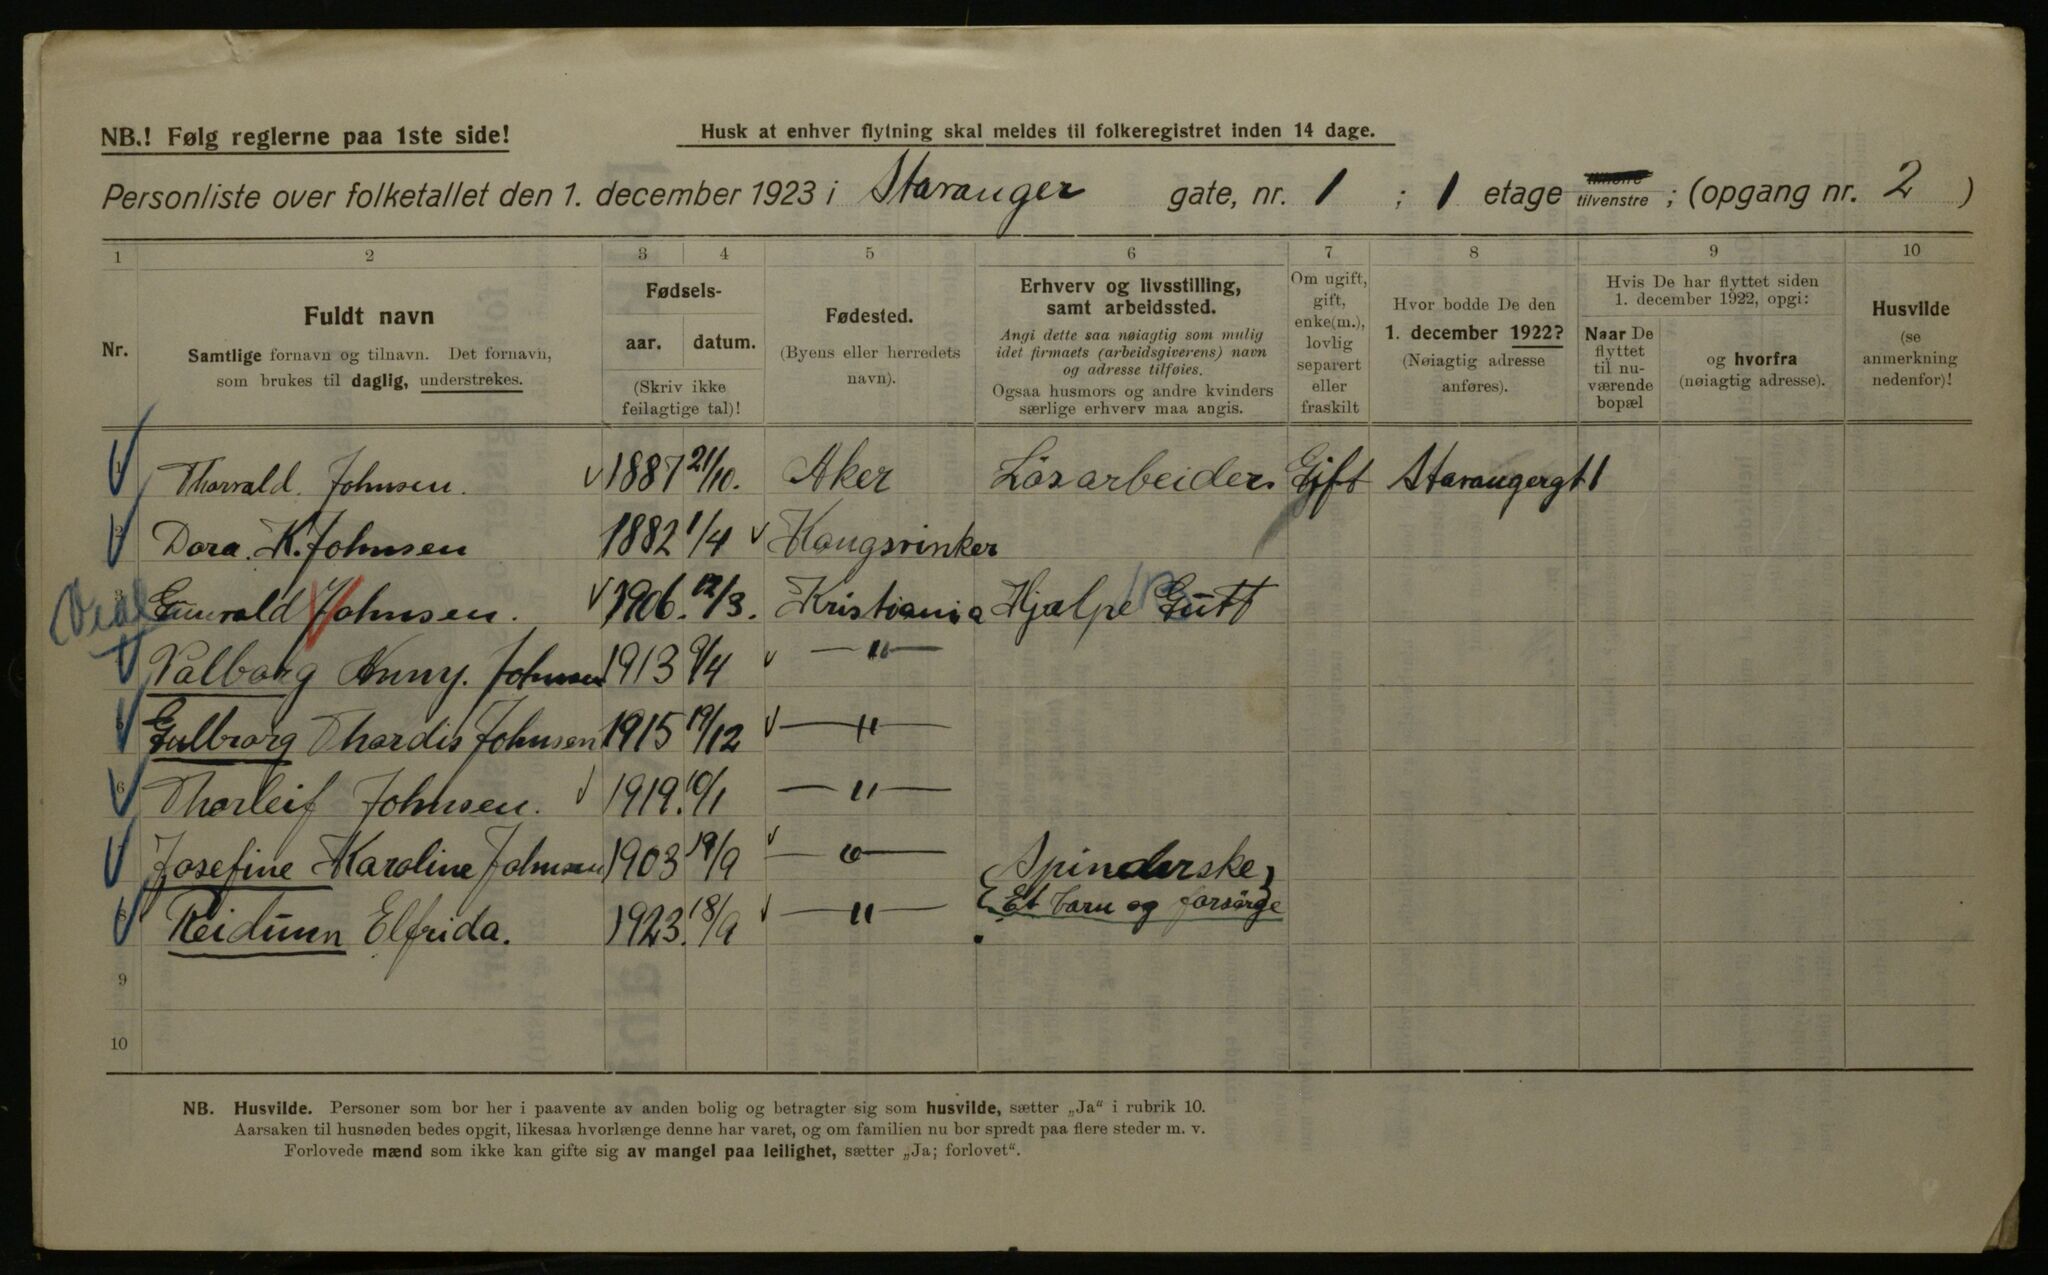 NB.! Følg reglerne paa 1ste side!
Husk at enhver flytning skal meldes til folkeregistret inden 14 dage.
Personliste over folketallet den 1. december 1923 i Stavanger gate, nr. 1 ; 1 etage tilvenstre ; (opgang nr. 2 )
1 2 3 4 5 6 7 8 9 10
Nr.
Fuldt navn
Samtlige fornavn og tilnavn. Det fornavn,
som brukes til daglig, understrekes.
Fødsels-
aar. datum.
(Skriv ikke
feilagtige tal)!
Fødested.
(Byens eller herredets
navn).
Erhverv og livsstilling,
samt arbeidssted.
Angi dette saa nøiagtig som mulig
idet firmaets (arbeidsgiverens) navn
og adresse tilføies.
Ogsaa husmors og andre kvinders
særlige erhverv maa angis.
Om ugift,
gift,
enke(m.),
lovlig
separert
eller
fraskilt
Hvor bodde De den
1. december 1922?
(Nøiagtig adresse
anføres).
Hvis De har flyttet siden
1. december 1922, opgi:
Naar De
flyttet
til nu-
værende
bopæl
og hvorfra
(nøiagtig adresse).
Husvilde
(se
anmerkning
nedenfor)!
Thorvald. Johnsen. 1887 21/10. Aker Lösarbeider. Gift Stavangergt 1
Dora. K. Johnsen 1882 1/4 Kougsvinker
Gunvald Johnsen. 1906. 12/3. Kristiania Hjælpe Gutt
Valborg Anny. Johnsen 1913 9/4 — " —
5 Gulborg Thordis Johnsen 1915 19/12 — " —
6 Thorleif Johnsen. 1919. 10/1 — " —
Josefine Karoline Johnsen 1903 19/9 — " — Spinderske
8 Reidunn Elfrida. 1923. 18/9 — " — Et barn og forsörge
9
10
NB. Husvilde. Personer som bor her i paavente av anden bolig og betragter sig som husvilde, sætter „Ja“ i rubrik 10.
Aarsaken til husnøden bedes opgit, likesaa hvorlænge denne har varet, og om familien nu bor spredt paa flere steder m. v.
Forlovede mænd som ikke kan gifte sig av mangel paa leilighet, sætter „Ja; forlovet“.